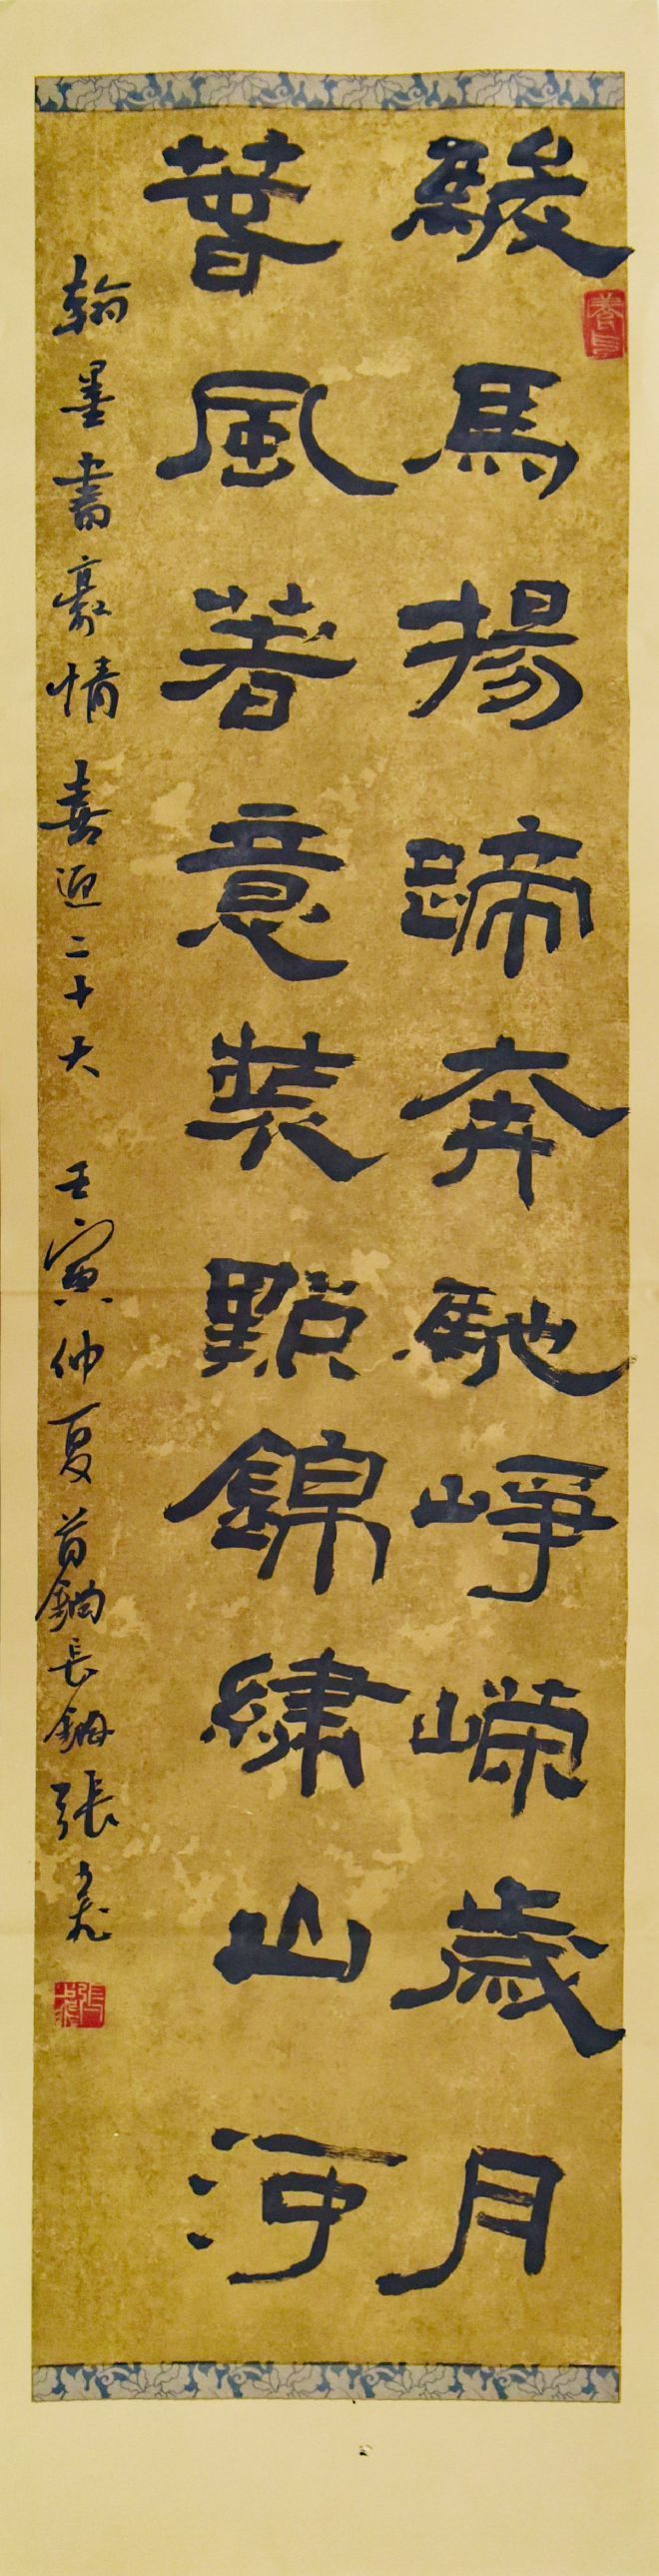 駿馬揚蹄奔馳崢嶸歲月
春風著意裝點錦繡山河
翰墨書豪情 喜迎二十大 壬寅仲夏首鋼長鋼張